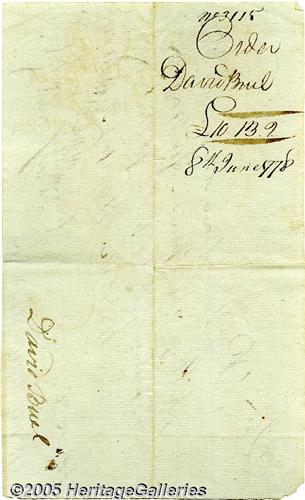 No 3115
Order
David Buel
£10 13.9
8th June 1778
David Buel
© 2005 HeritageGalleries